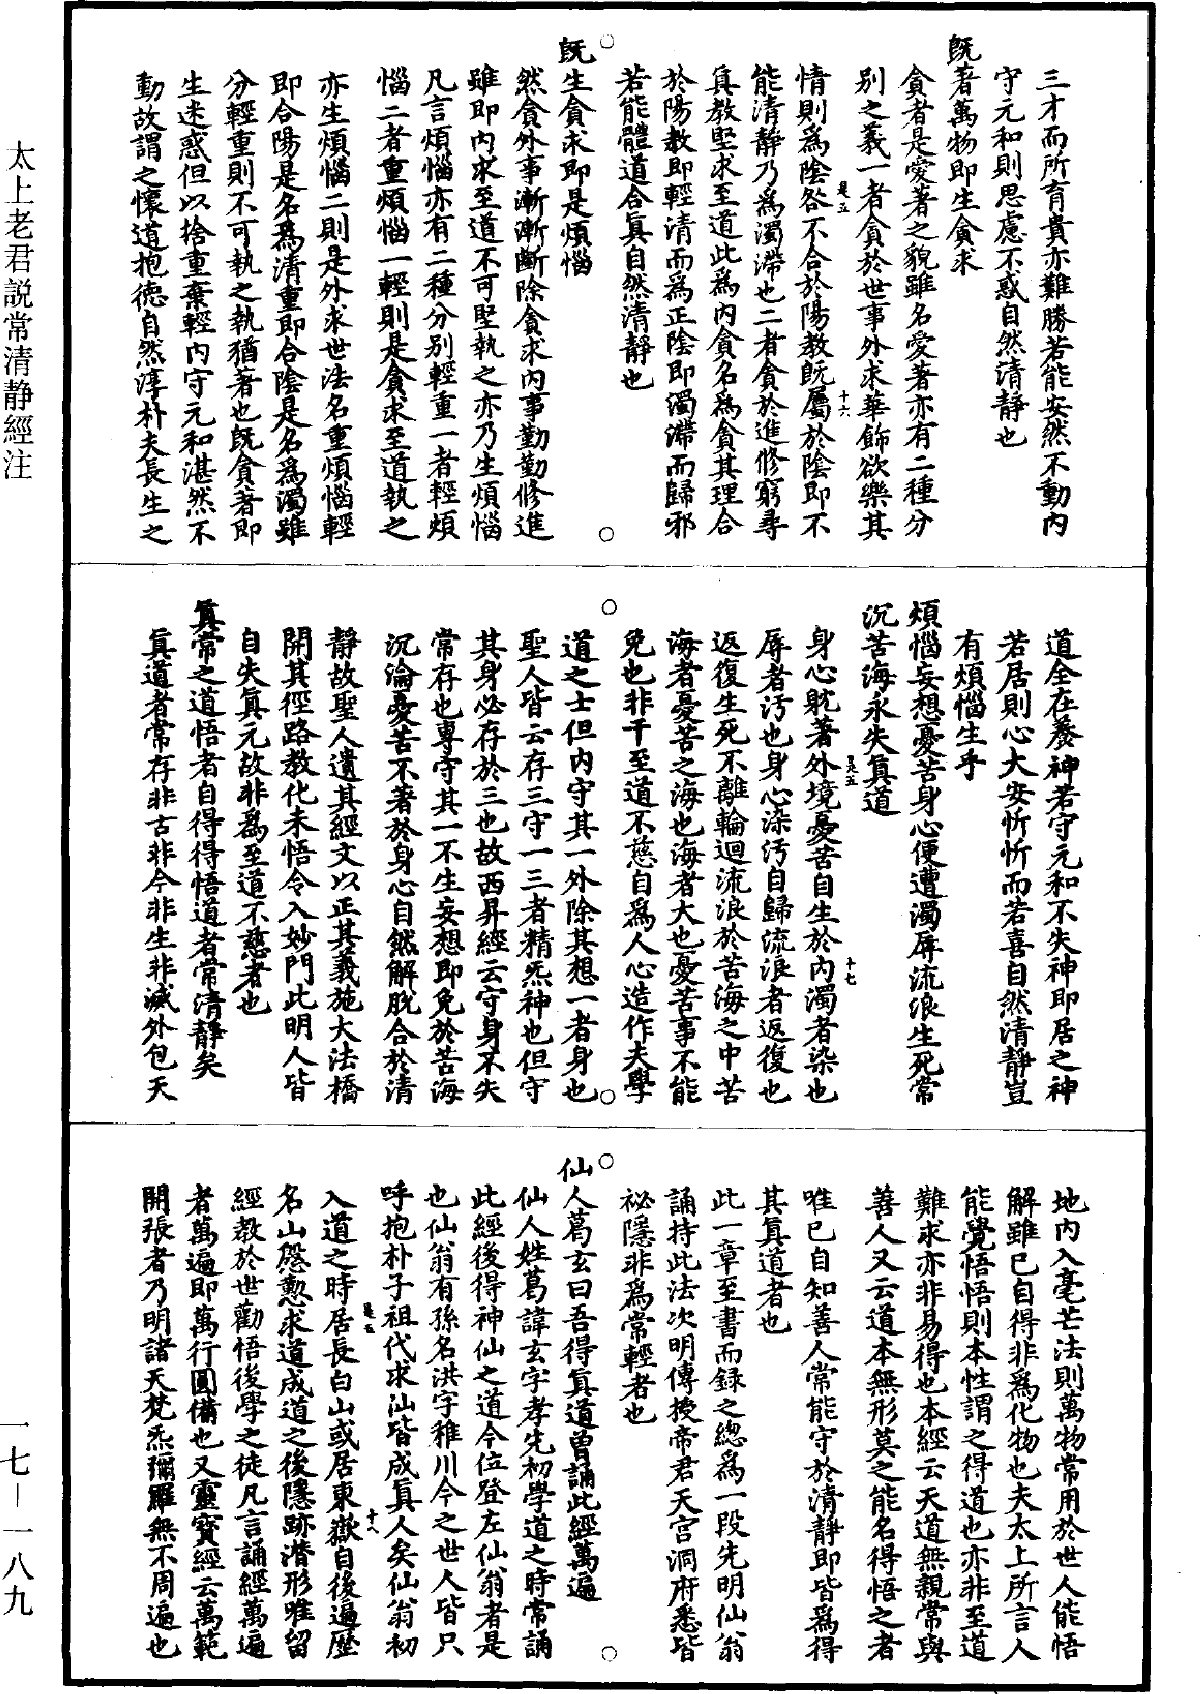 太上老君説常清静經注
三才而所育貴亦難勝若能安然不動内
守元和則思慮不惑自然清静也
既著萬物即生貪求
貪者是愛著之貌雖名愛著亦有二種分
别之義一者貪於世事外求華飾欲樂其
是五
十六
情則爲陰咎不合於陽教既屬於陰即不
能清静乃爲濁滯也二者貪於進修窮尋
真教堅求至道此爲内貪名爲貪其理合
於陽教即輕清而爲正陰即濁滯而歸邪
若能體道合真自然清静也
既生貪求即是煩惱
然貪外事漸漸斷除貪求内事勤勤修進
雖即内求至道不可堅執之亦乃生煩惱
凡言煩惱亦有二種分别輕重一者輕煩
惱二者重煩惱一輕則是貪求至道執之
亦生煩惱二則是外求世法名重煩惱輕
即合陽是名爲清重即合陰是名爲濁雖
分輕重則不可執之執猶著也既貪著即
生迷惑但以捨重棄輕内守元和湛然不
動故謂之懷道抱德自然淳朴夫長生之
道全在養神若守元和不失神即居之神
若居則心大安忻忻而若喜自然清静豈
有煩惱生乎
煩惱妄想憂苦身心便遭濁辱流浪生死常
沉苦海永失真道
是五
十七
身心躭著外境憂苦自生於内濁者染也
辱者污也身心染污自歸流浪者返復也
返復生死不離輪迴流浪於苦海之中苦
海者憂苦之海也海者大也憂苦事不能
免也非干至道不慈自爲人心造作夫學
道之士但内守其一外除其想一者身也
聖人皆云存三守一三者精炁神也但守
其身必存於三也故西昇經云守身不失
常存也專守其一不生妄想即免於苦海
沉淪憂苦不著於身心自然解脱合於清
静故聖人遺其經文以正其義施大法橋
開其徑路教化未悟令入妙門此明人皆
自失真元故非爲至道不慈者也
真常之道悟者自得得悟道者常清静矣
真道者常存非古非今非生非滅外包天
地内入毫芒法則萬物常用於世人能悟
解雖已自得非爲化物也夫太上所言人
能覺悟悟則本性謂之得道也亦非至道
難求亦非易得也本經云天道無親常與
善人又云道本無形莫之能名得悟之者
唯已自知善人常能守於清静即皆爲得
其真道者也
此一章至書而録之總爲一段先明仙翁
誦持此法次明傳授帝君天宫洞府悉皆
祕隱非爲常輕者也
仙人葛玄曰吾得真道曾誦此經萬遍
仙人姓葛諱玄字孝先初學道之時常誦
此經後得神仙之道今位登左仙翁者是
也仙翁有孫名洪字稚川今之世人皆只
呼抱朴子祖代求仙皆成真人矣仙翁初
是五
十八
入道之時居長白山或居東嶽自後遍歷
名山慇懃求道成道之後隱跡潜形唯留
經教於世勸悟後學之徒凡言誦經萬遍
者萬遍即萬行圓備也又靈寶經云萬範
開張者乃明諸天梵炁彌羅無不周遍也
一七—一八九